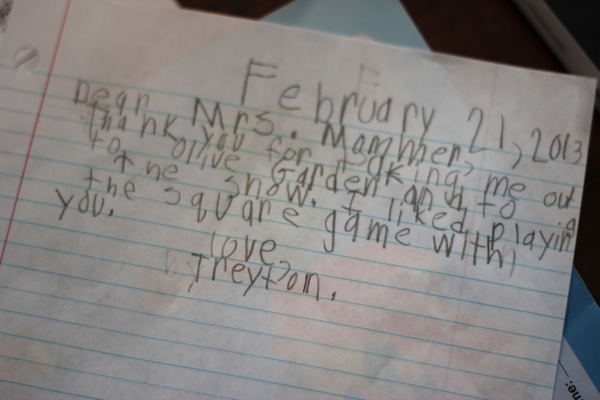 February 21, 2013
Dear Mrs. Mamher,
thank you for taking me out
to olive Garden and to
the show. I liked playing
the square game with
you.
love
Treyton.
me: